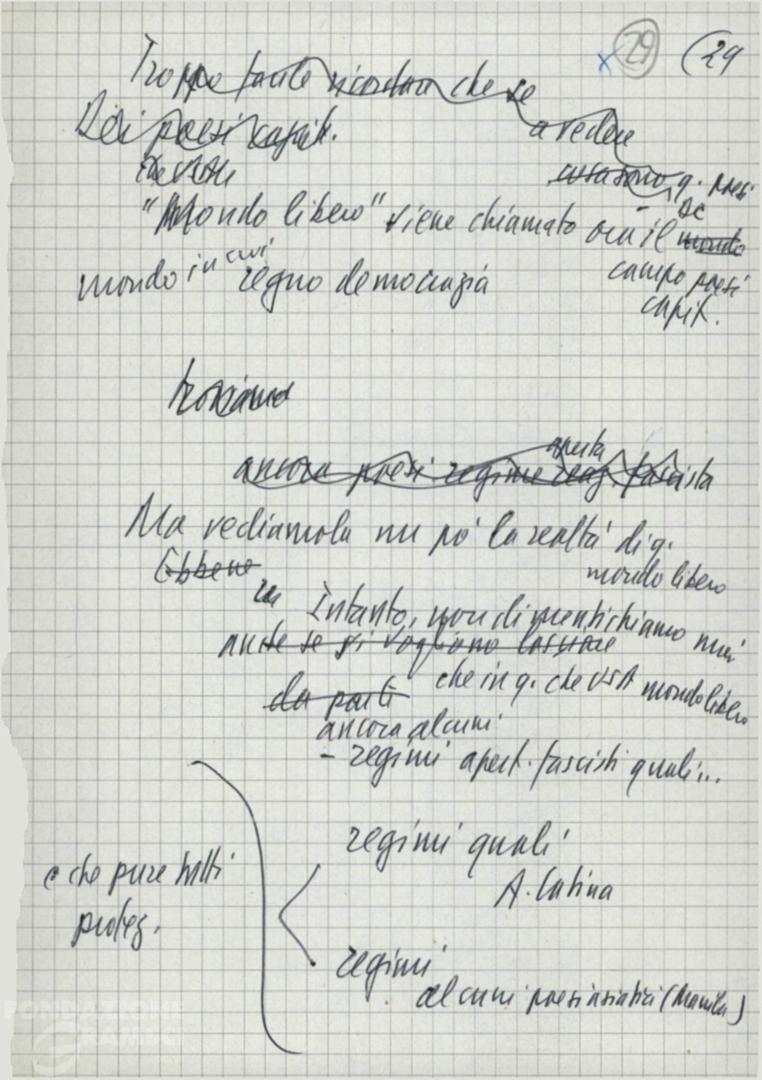 29 (29
Troppo facile ricordare che se
a vedere
Dei paesi capit.
che USA
q. paesi
"Mondo libero" viene chiamato ora il mondo
campo paesi
capit.
mondo in cui regno democrazia
troviamo
aperta
ancora paesi regime reaz. fascista
Ma vediamola un po' la realtà di q.
mondo libero
Ebbene
Intanto, non dimentichiamo mai
anche se vi vogliono lasciare
che in q. che USA mondo libero
da parte
ancora alcuni
- regimi apert. fascisti quali...
regimi quali
A. Latina
e che pure tutti
proteg.
regimi
alcuni paesi asiatici (Manila)
FONDAZIONE
GRAMSCI